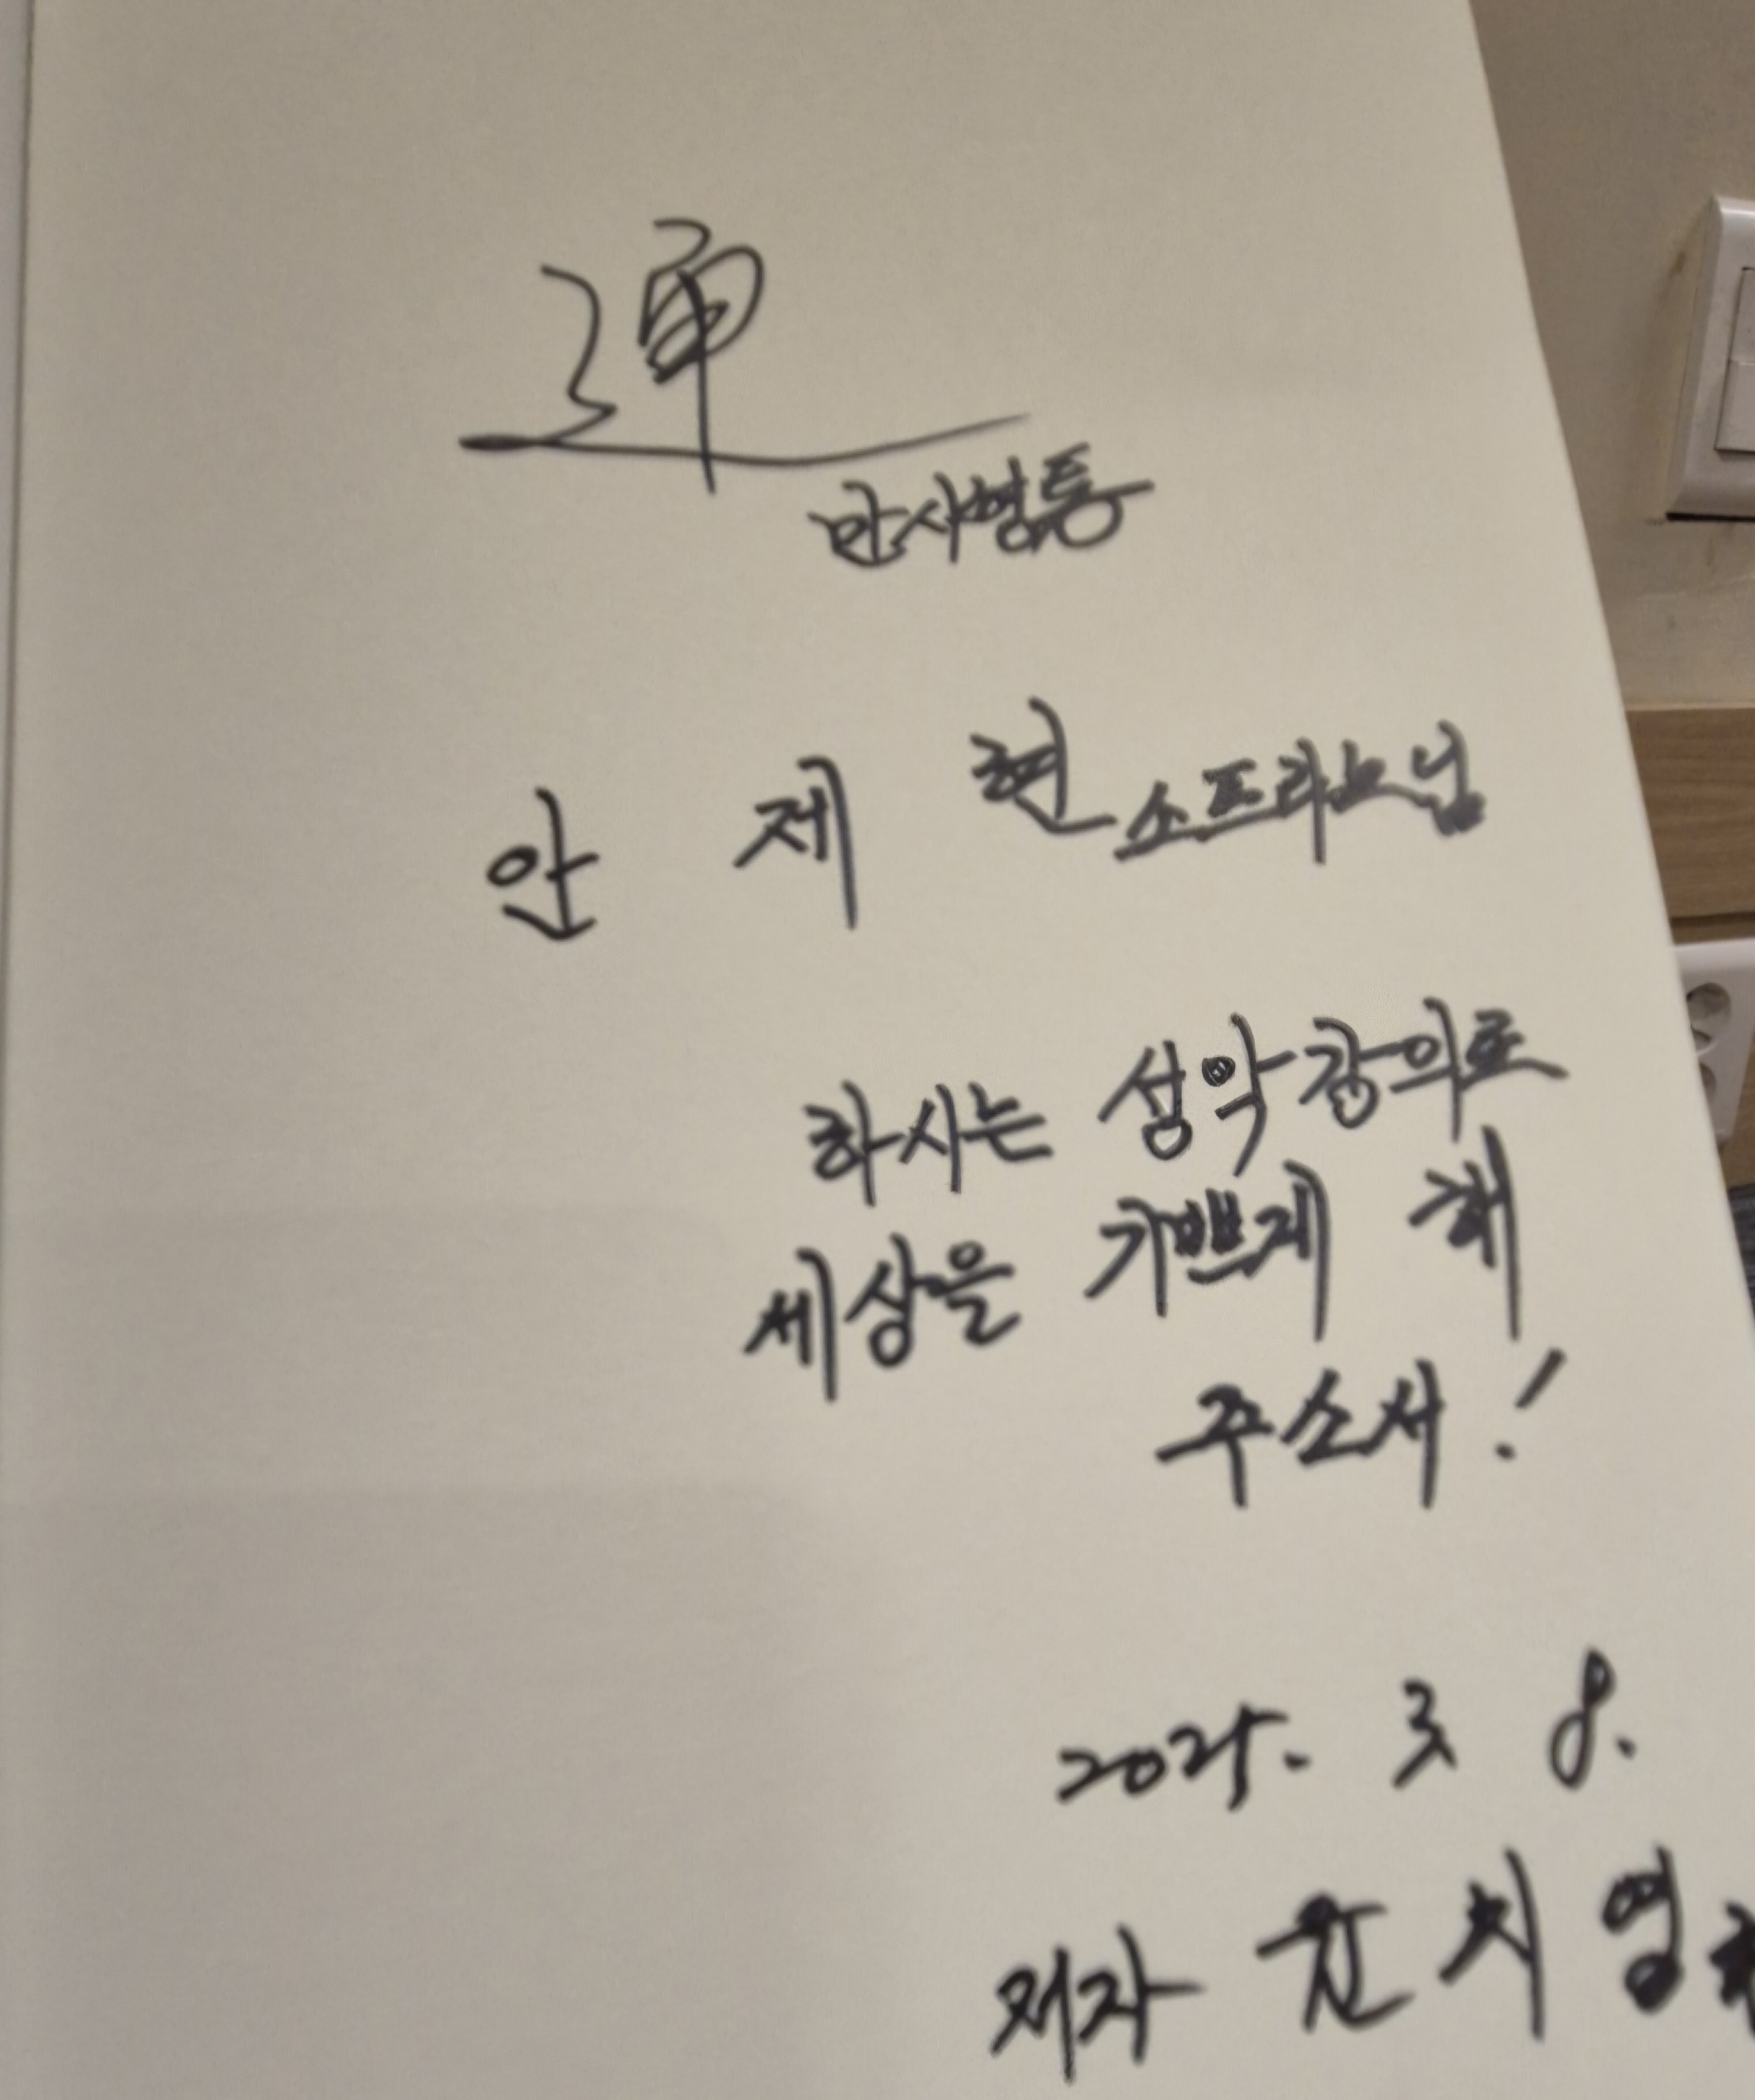 通
만사형통
안 제 현 소프라노님
하시는 성악 강의로
세상을 기쁘게 해
주소서!
2025. 3. 8.
저자 윤 치 영